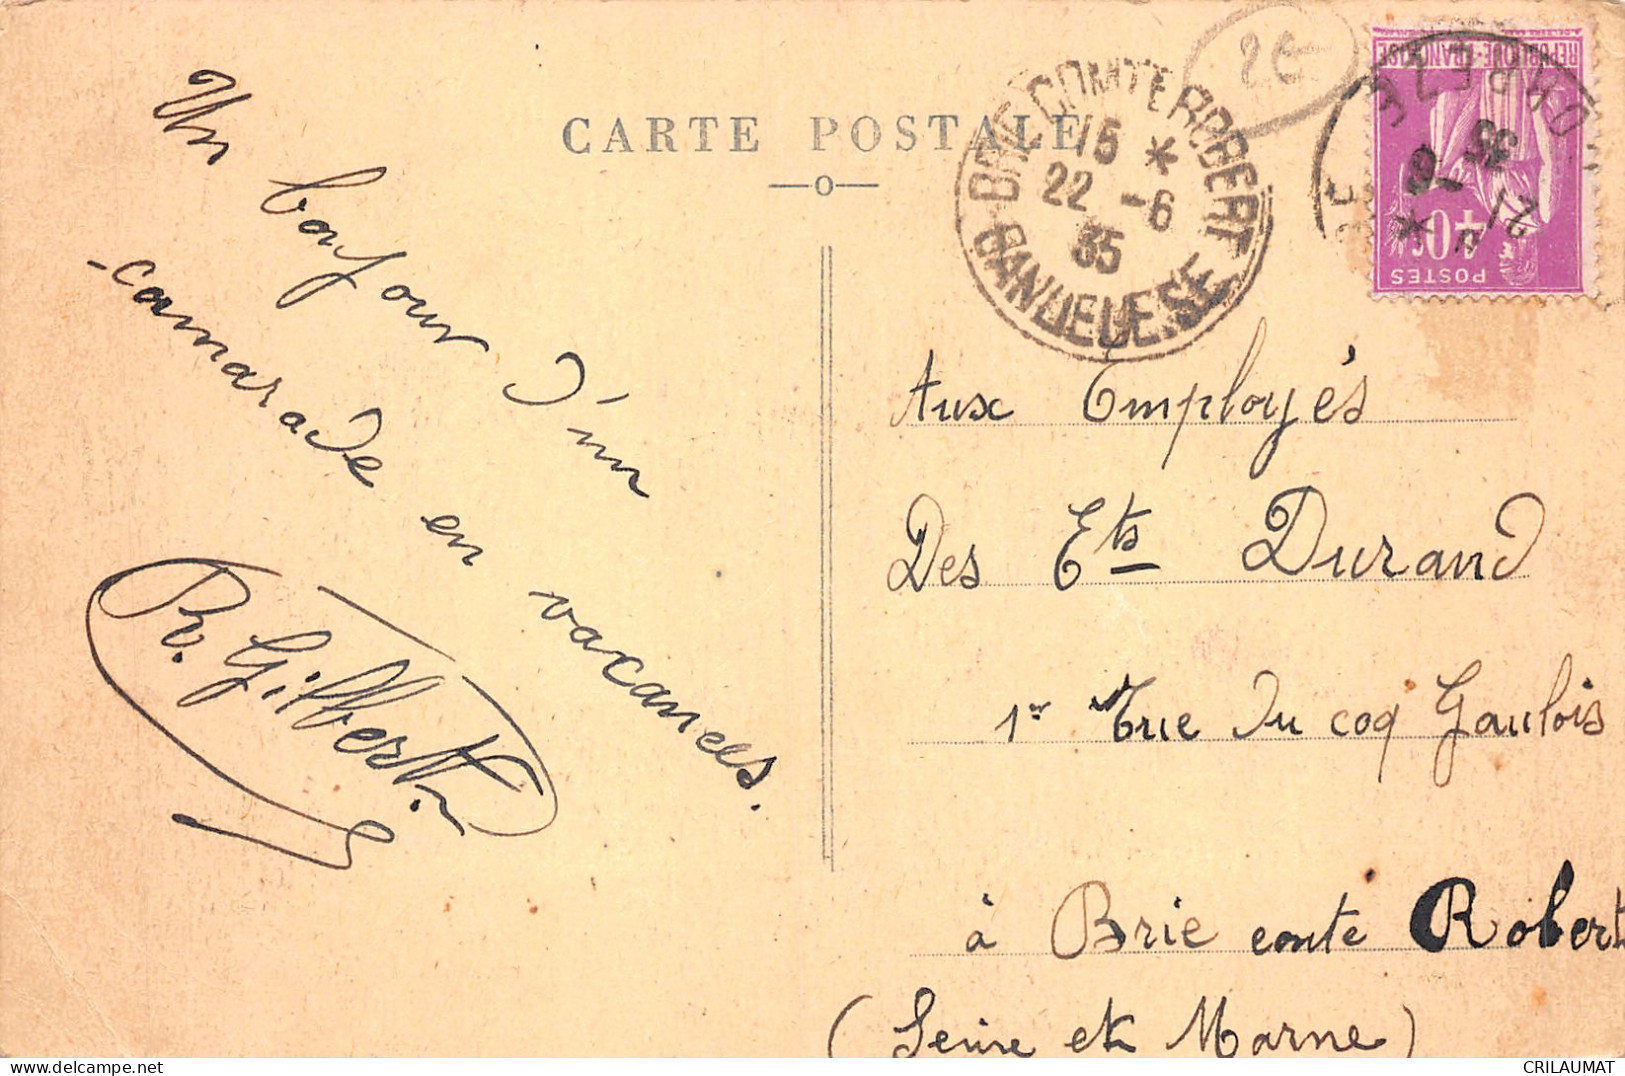 CARTE POSTALE
Un bonjour d'un
-camarade en vacances.
R. Gilbert.
2€
BRIE COMTE ROBERT
15 *
22 -6
35
REPUBLIQUE-FRANÇAISE
40c
POSTES
21
35
Aux Employés
Des Ets Durand
1 rue du coq Gaulois
à Brie conte Robert
(Seine et Marne)
CRILAUMAT